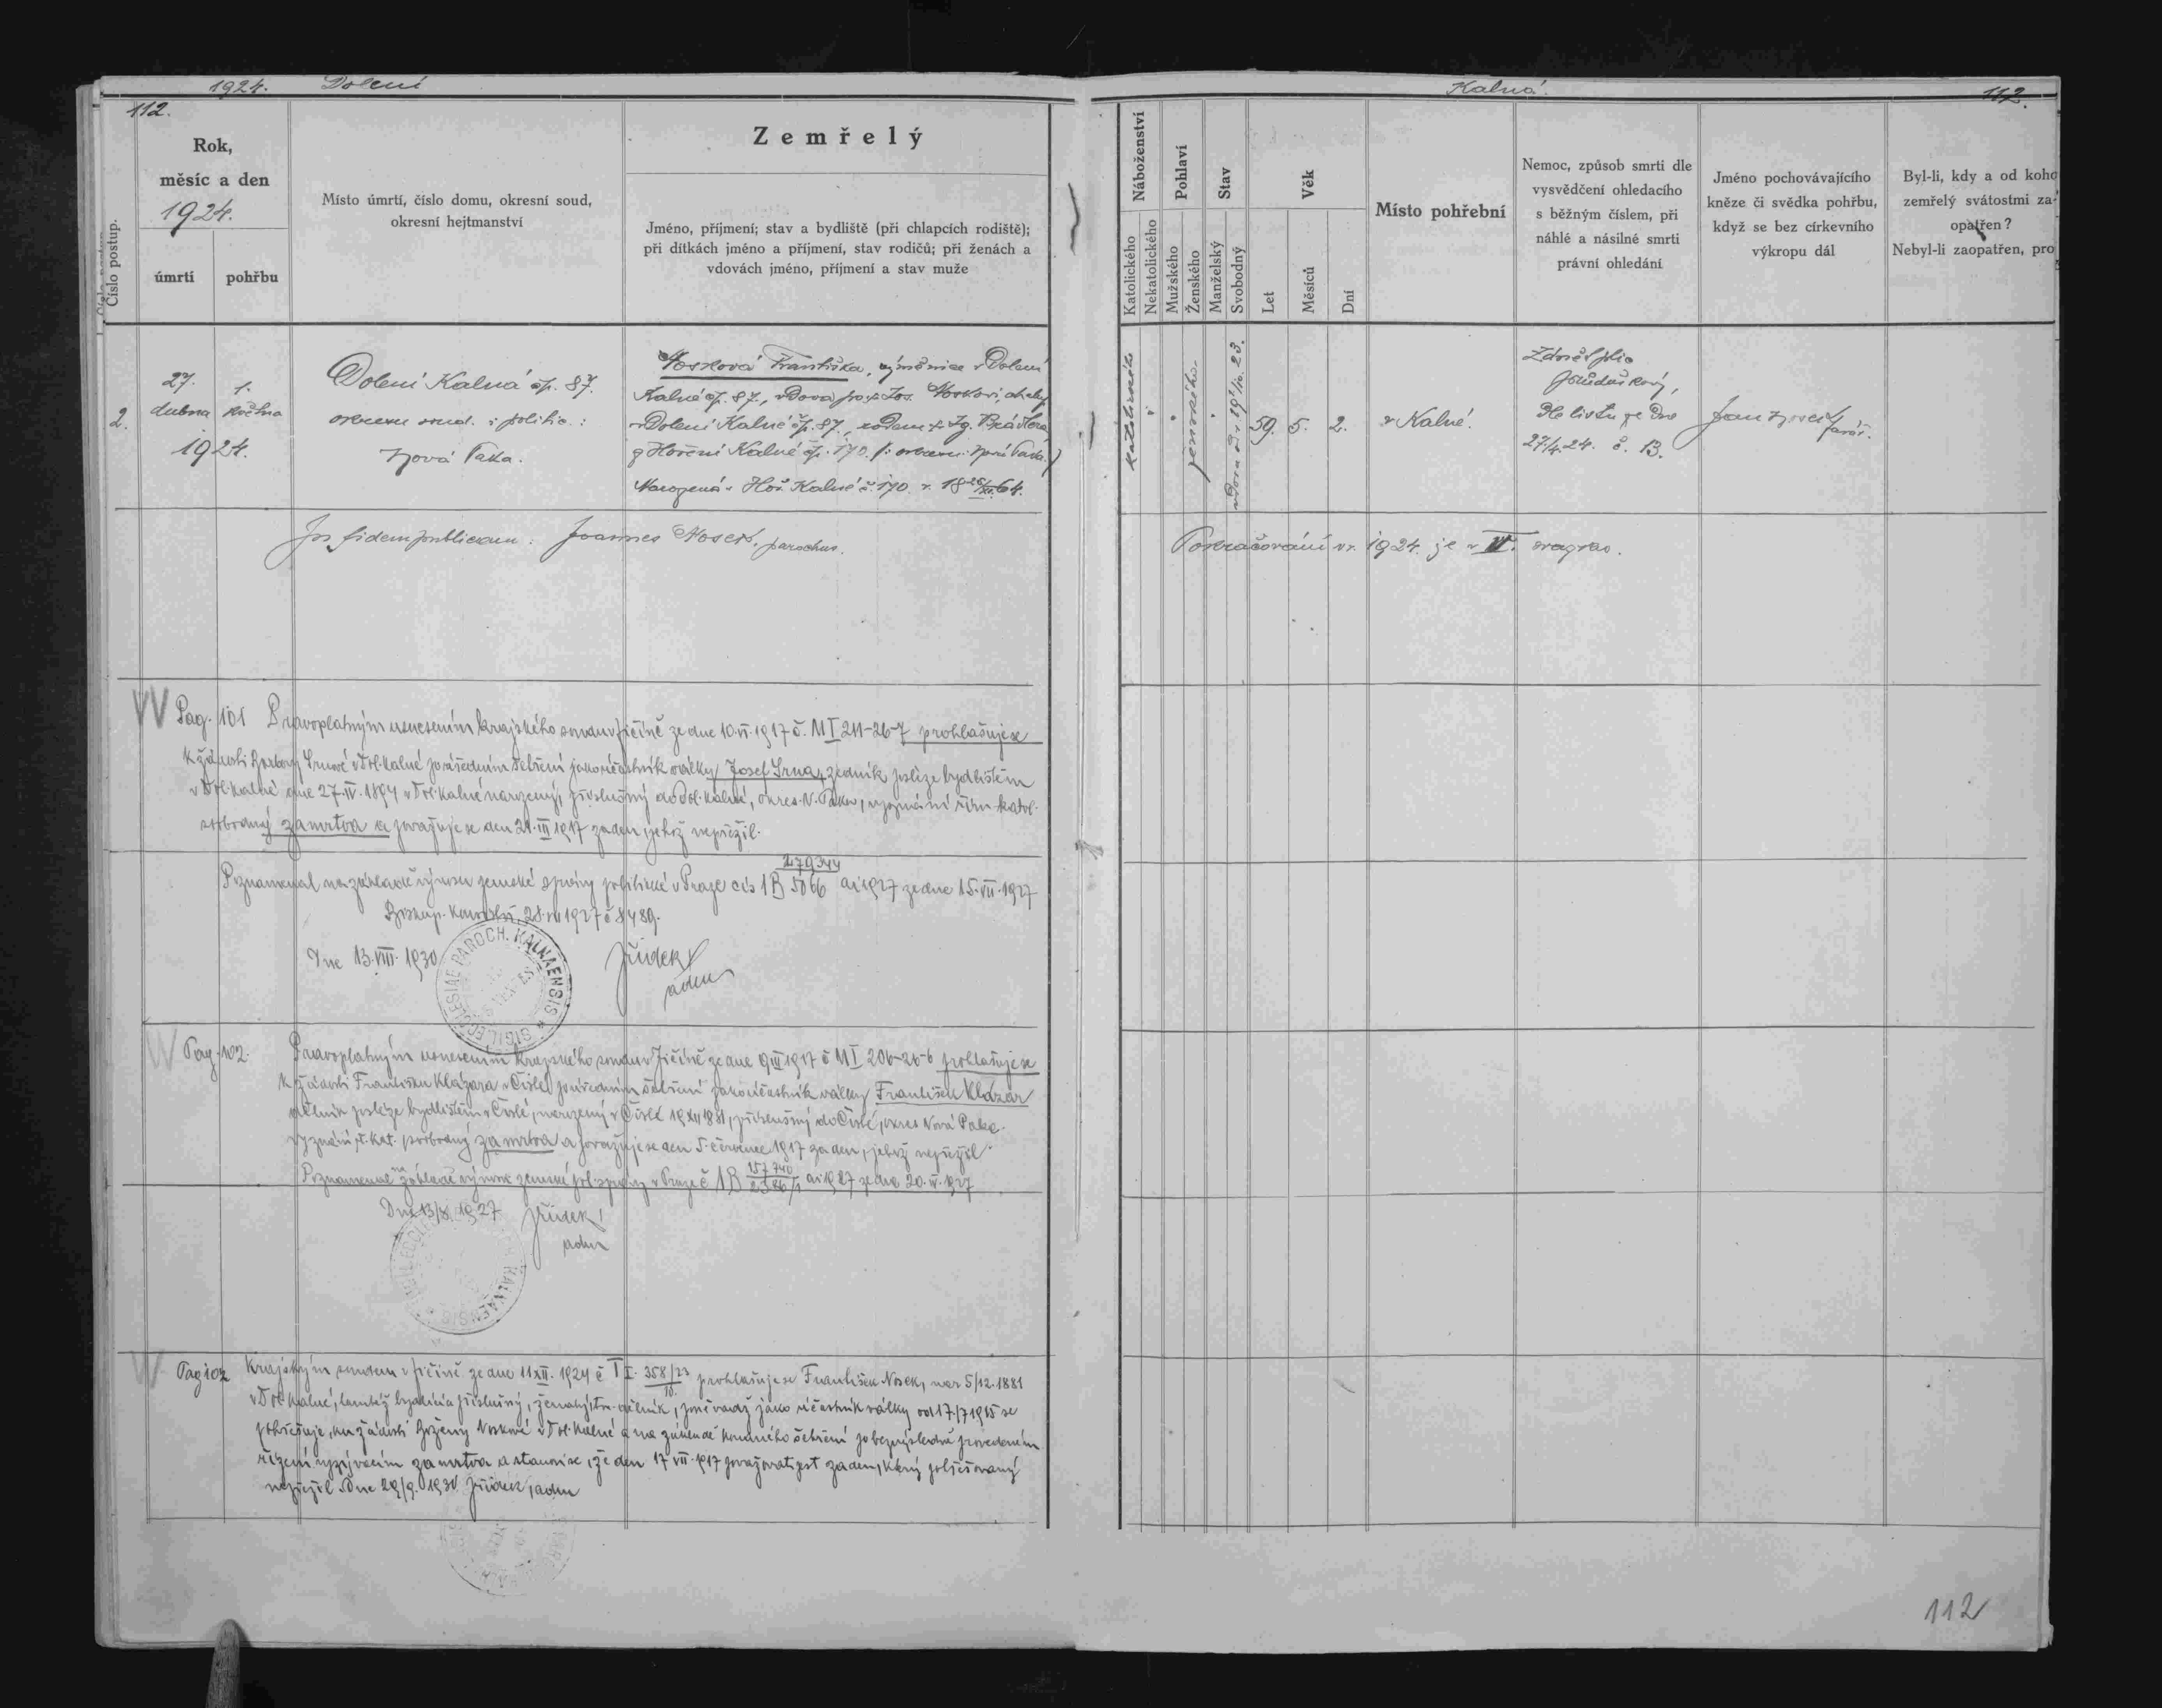 1924. Dolení
Kalná.
112.
112.
Číslo postup.
Rok,
měsíc a den
1924.
úmrtí
pohřbu
Místo úmrtí, číslo domu, okresní soud,
okresní hejtmanství
Zemřelý
Jméno, příjmení; stav a bydliště (při chlapcích rodiště);
při dítkách jméno a příjmení, stav rodičů; při ženách a
vdovách jméno, příjmení a stav muže
Náboženství
Katolického
Nekatolického
Pohlaví
Mužského
Ženského
Stav
Manželský
Svobodný
Věk
Let
Měsíců
Dní
Místo pohřební
Nemoc, způsob smrti dle
vysvědčení ohledacího
s běžným číslem, při
náhlé a násilné smrti
právní ohledání
Jméno pochovávajícího
kněze či svědka pohřbu,
když se bez církevního
výkropu dál
Byl-li, kdy a od koho
zemřelý svátostmi za-
opatřen?
Nebyl-li zaopatřen, pro
2.
27.
dubna
1.
května
1924.
Dolení Kalná čp. 87.
okresu soud. i politic.:
Nová Paka.
Nosková Františka, výměnice v Dolení
Kalné čp. 87., vdova po Jos. Noskovi,
v Dolení Kalné čp. 87., rodem
z Hoření Kalné čp. 170.
Narozená v Hoř. Kalné č. 170. r. 18 64.
ženského
59. 5. 2.
v Kalné.
Dle listu ze dne
27/4.24. č. 13.
Jan Nosek
farář.
Pro fidem publicam: Joannes Nosek, parochus.
Pokračování v r. 1924. je v
Pag. 101 Pravoplatným usnesením krajského soudu v Jičíně ze dne 10.VI.1917 č. M I 211-26-7 prohlašuje se
k žádosti Srnové v Dol. Kalné po šetření jako účastník války Josef Srna, zedník posléze bydlištěm
v Dol. Kalné dne 27.IV.1894 v Dol. Kalné narozený, příslušný do Dol. Kalné, okres N. Paka, vyznání řím. katol.
svobodný za mrtva a považuje se den 21.III.1917 za den, jehož nepřežil.
Poznamenal na základě výnosu zemské správy politické v Praze čís 1B 5066 ai 1927 ze dne 15.VII.1927
Biskup. 28. 1927 č 8489.
Dne 13.VIII.1930
Jůdek
adm
SIGIL. ECCLESIAE PAROCH. KALNAENSIS
Pag. 102. Pravoplatným usnesením krajského soudu v Jičíně ze dne č M I 206-26-6 prohlašuje se
k žádosti Františka Klazara v Čisté po šetření jako účastník války František Klazar
dělník posléze bydlištěm v Čisté, narozený v Čisté 19.XII.1881, příslušný do Čisté, okres Nová Paka.
vyznání ř. kat. svobodný za mrtva a považuje se den 5. července 1917 za den, jehož nepřežil.
Poznamenal na základě výnosu zemské pol. správy v Praze č 1B ai 1927 ze dne
Dne 13/8. 1927 Jůdek
adm
Pag 102 Krajským soudem v Jičíně ze dne 11.XII.1924 č T I. 358/23 prohlašuje se František Nosek, nar 5/12.1881
v Dol. Kalné, tamtéž bydlící a příslušný, ženatý, dělník, jako účastník války od 17/7 1915 se
pohřešuje, ku žádosti Boženy Noskové v Dol. Kalné a na základě konaného šetření po bezvýsledně provedeném
řízení vyzývacím za mrtva a stanoví se, že den 17.VII.1917 považovati jest za den, který pohřešovaný
nepřežil. Dne 29/9.1930 Jůdek, adm
112